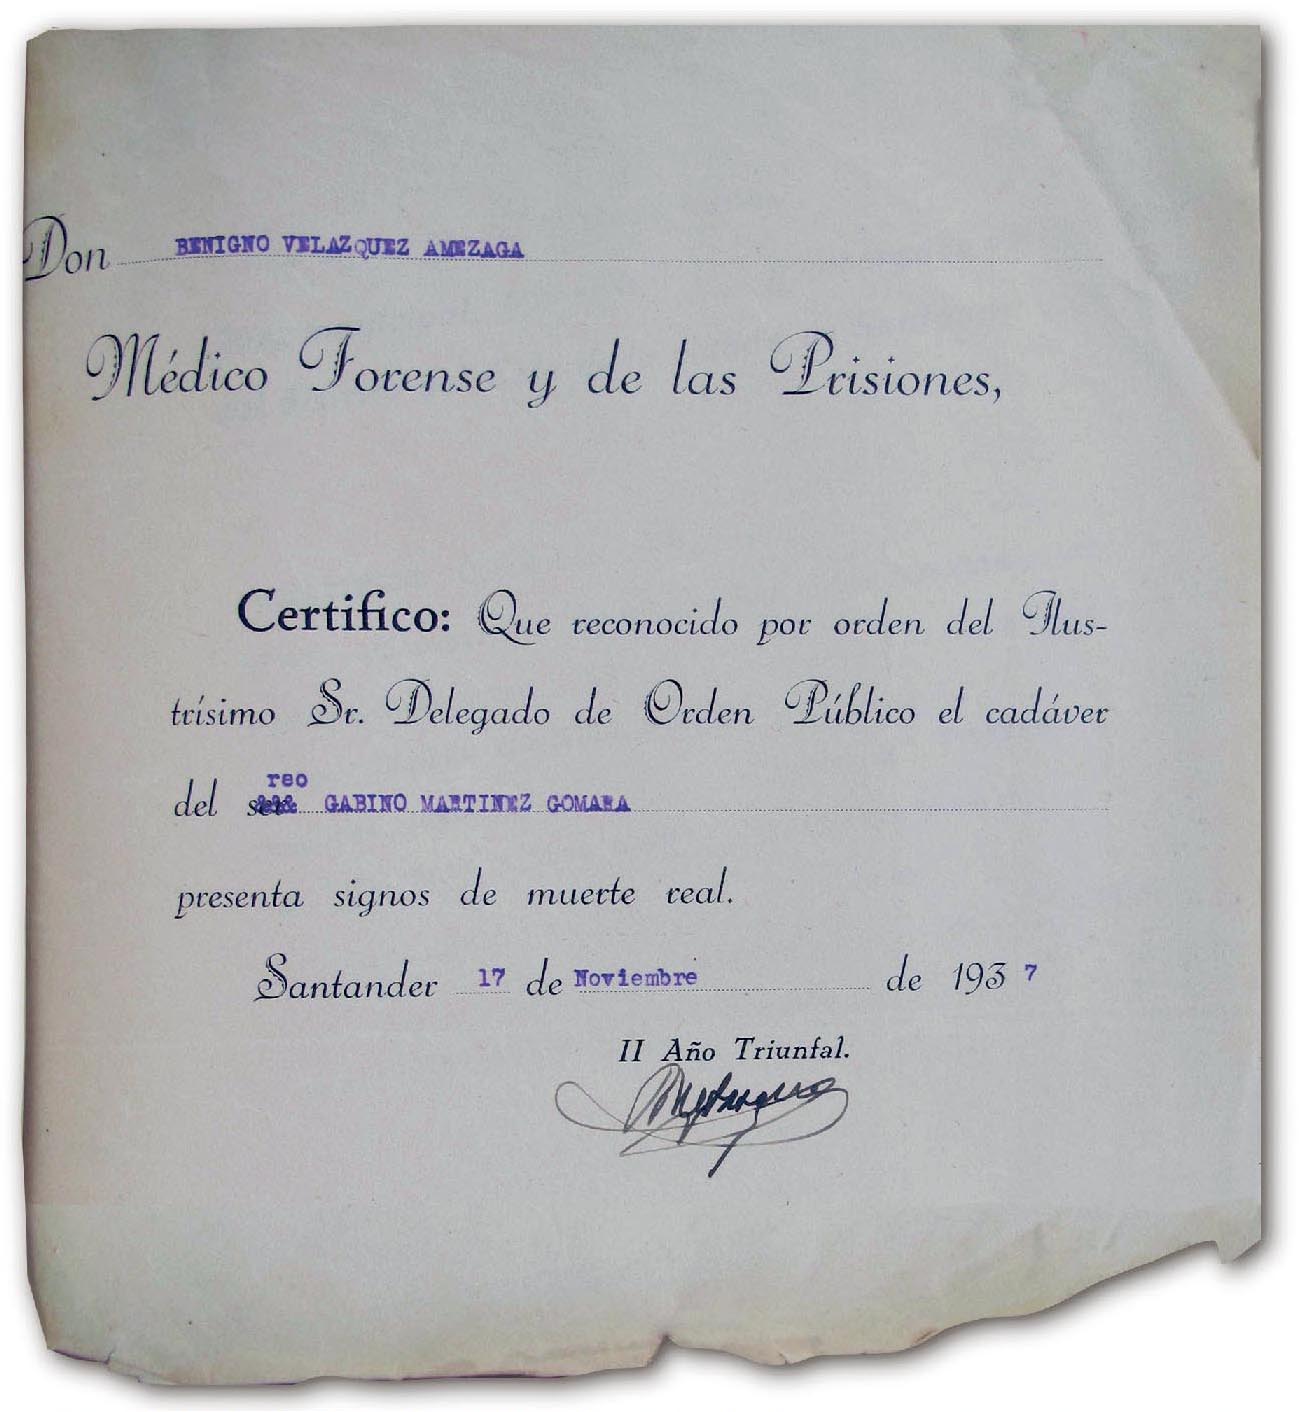 Don BENIGNO VELAZQUEZ AMEZAGA
Médico Forense y de las Prisiones,
Certifico: Que reconocido por orden del Ilus-
trísimo Sr. Delegado de Orden Público el cadáver
reo
del GABINO MARTINEZ GOMARA
presenta signos de muerte real.
Santander 17 de Noviembre de 1937
II Año Triunfal.